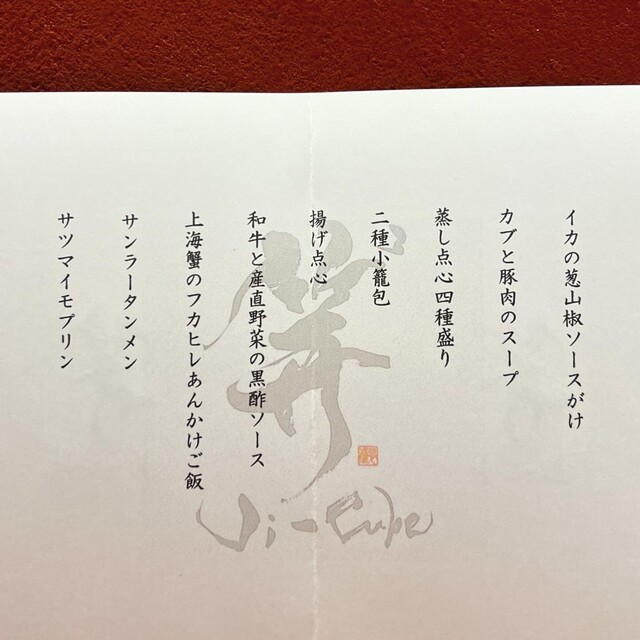 イカの葱山椒ソースがけ
カブと豚肉のスープ
蒸し点心四種盛り
二種小籠包
揚げ点心
和牛と産直野菜の黒酢ソース
上海蟹のフカヒレあんかけご飯
サンラータンメン
サツマイモプリン
Ji-Cube